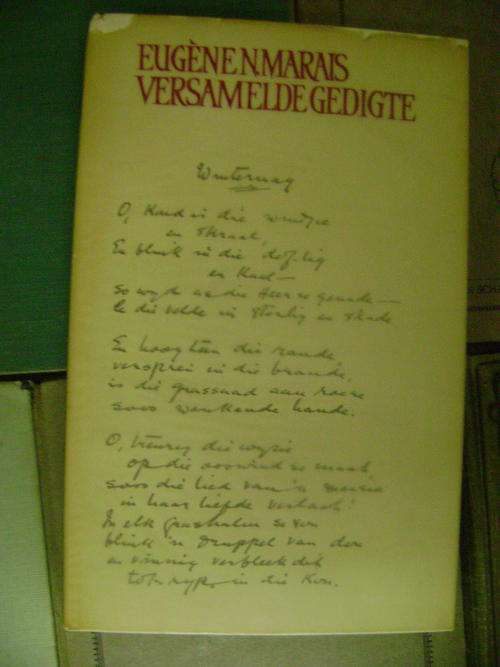 EUGÈNE N. MARAIS
VERSAMELDE GEDIGTE
Winternag
O, Koud is die windjie
en skraal,
En blink in die dof-lig
en kaal—
so wyd as die Heer se genade—
lê die velde in sterlig en skade
En hoog teen die rande
versprei in die brande,
is die grassaad aan roere
soos wenkende hande.
O, treurig die wysie
op die ooswind se maat,
soos die lied van 'n meisie
in haar liefde verlaat!
In elk grashalm se vou
blink 'n druppel van dou
en vinnig verbleek dit
tot ryp, in die Kou.